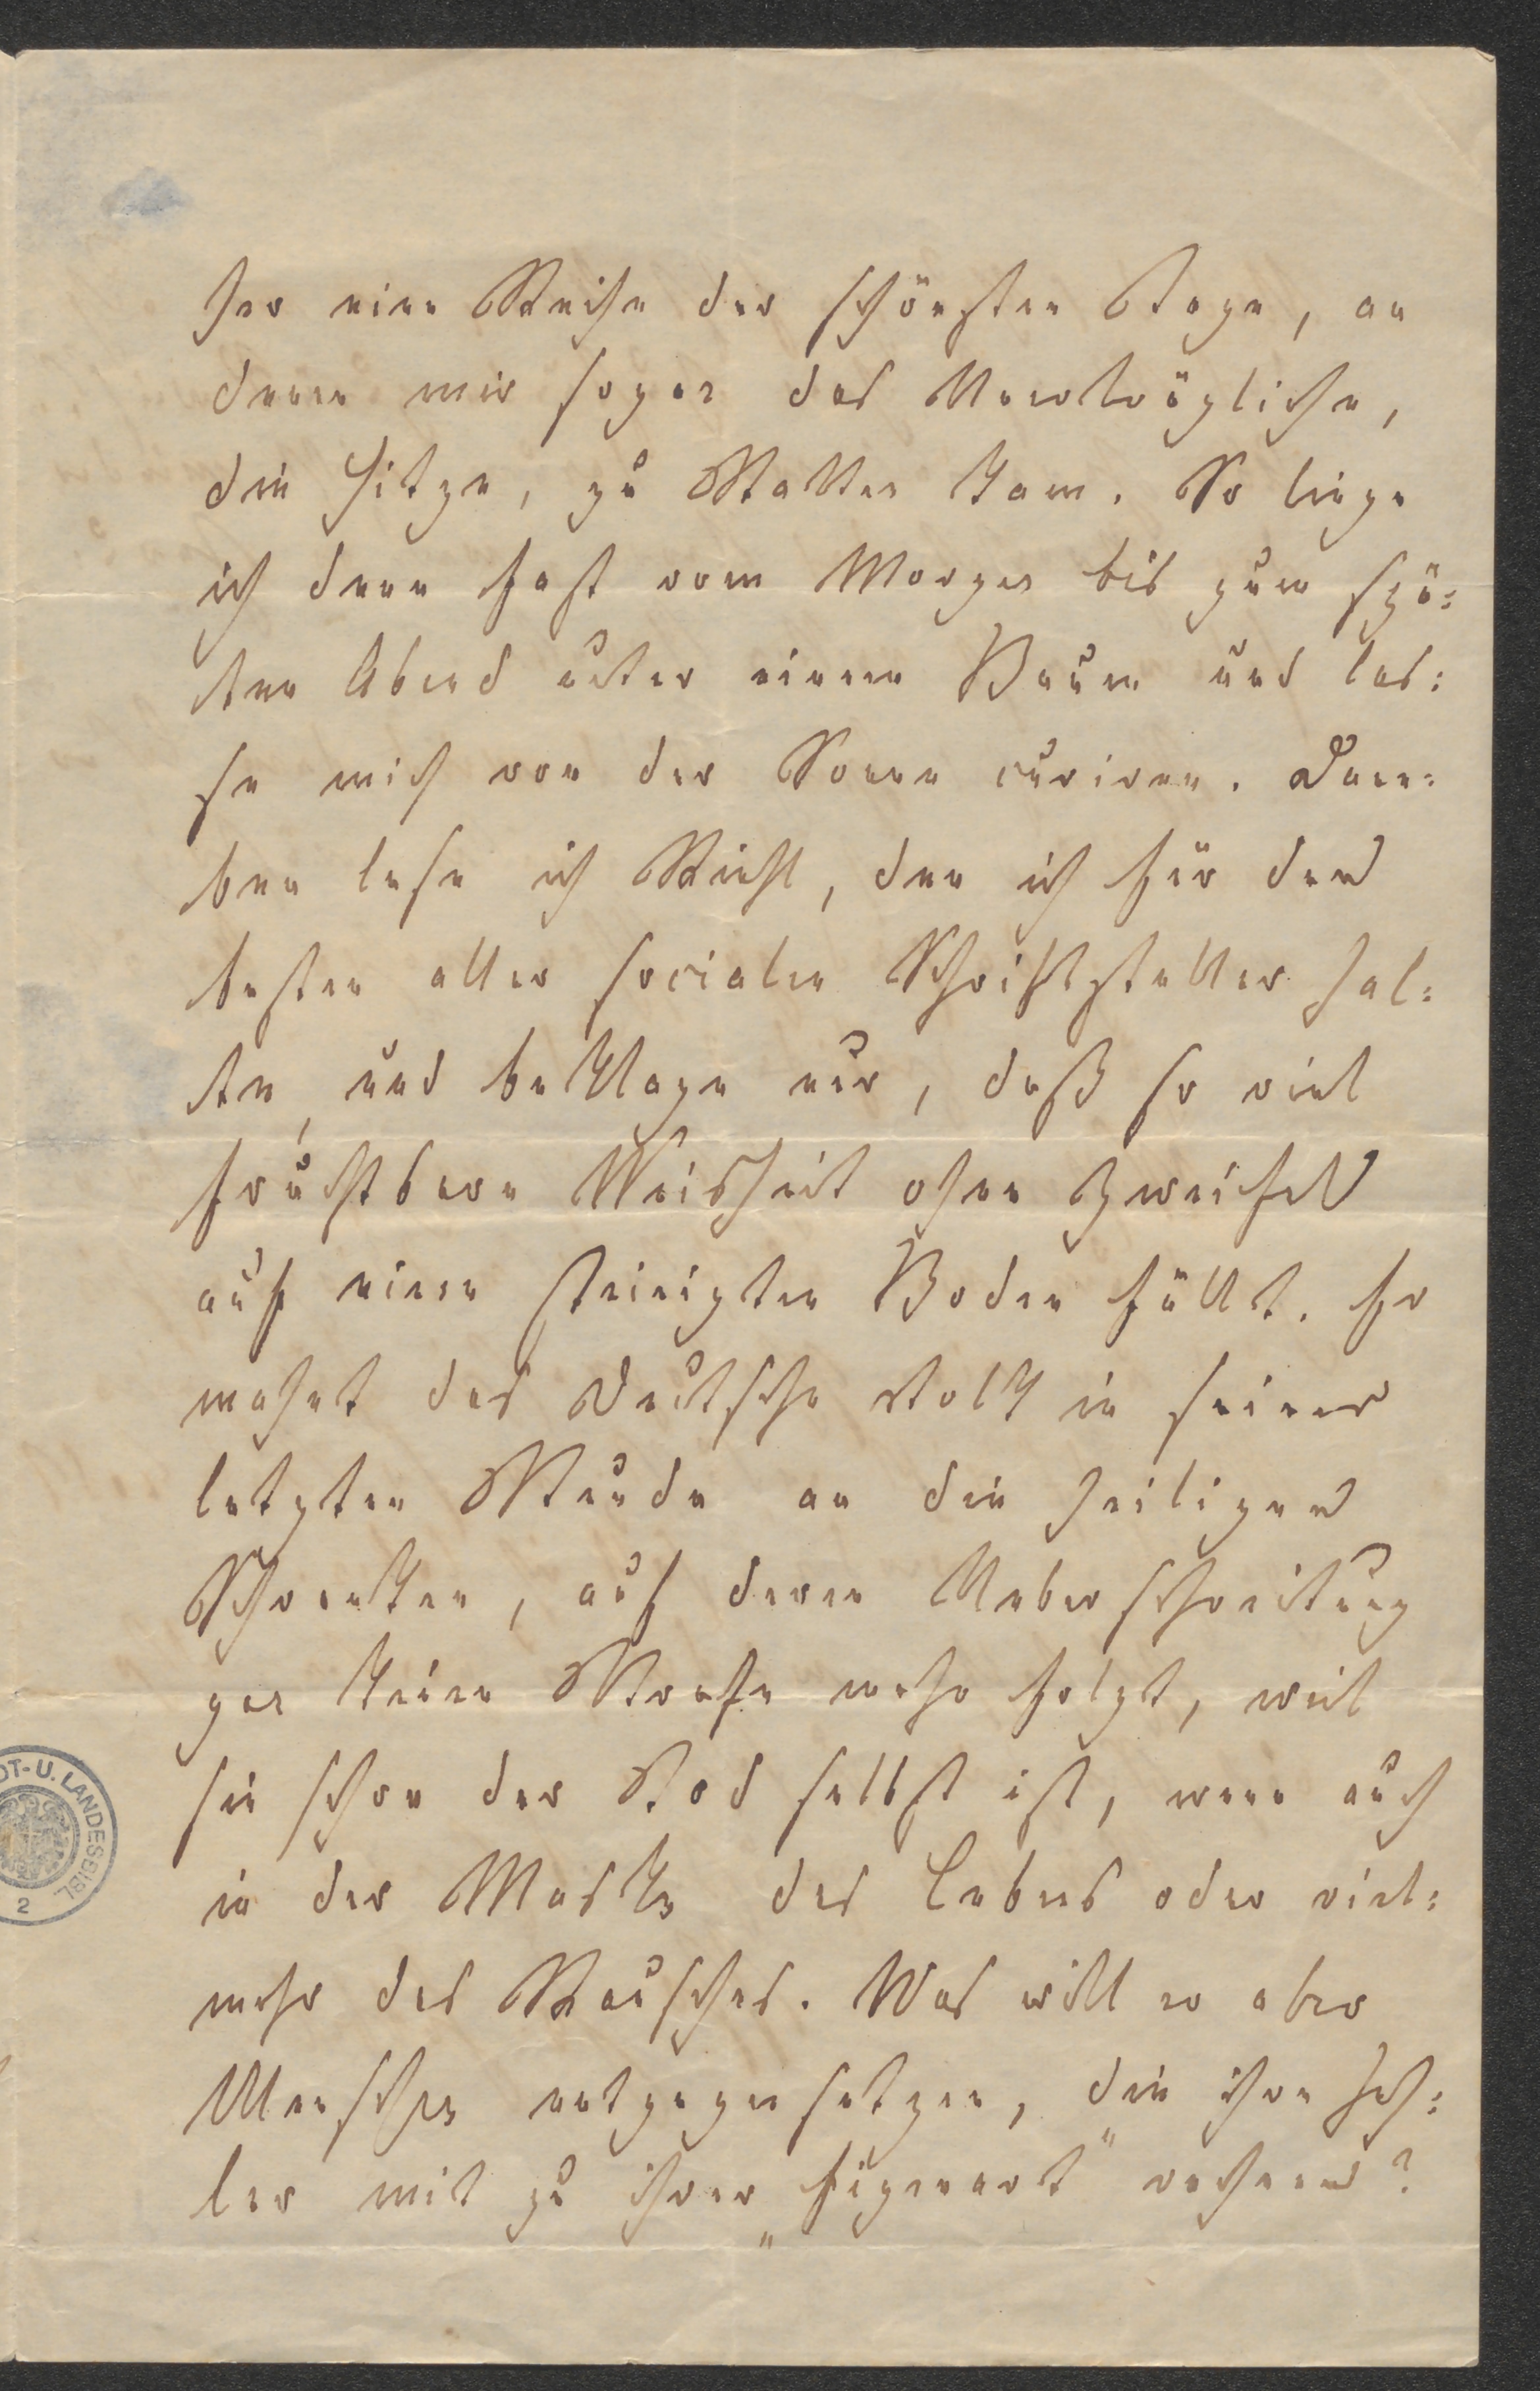 her eine Reihe der schönsten Tage, an
denen mir sogar das Unerträgliche,
die Hitze, zu Statten kam. So liege
ich denn fast vom Morgen bis zum spä=
ten Abend unter einem Baum und las=
se mich von der Sonne curiren. Dane=
ben lese ich Riehl, den ich für den
besten aller socialen Schriftsteller hal=
te, und beklage nur, daß so viel
fruchtbare Weisheit ohne Zweifel
auf einen steinigten Boden fällt. Er
mahnt das deutsche Volk in seiner
letzten Stunde an die heiligen
Schranken, auf deren Ueberschreitung
gar keine Strafe mehr folgt, weil
sie schon der Tod selbst ist, wenn auch
in der Maske des Lebens oder viel=
mehr des Rausches. Was will er aber
Menschen entgegensetzen, die ihre Feh=
ler mit zu ihrer „Eigenart" rechnen?
DT- U. LANDESBIBL.
2